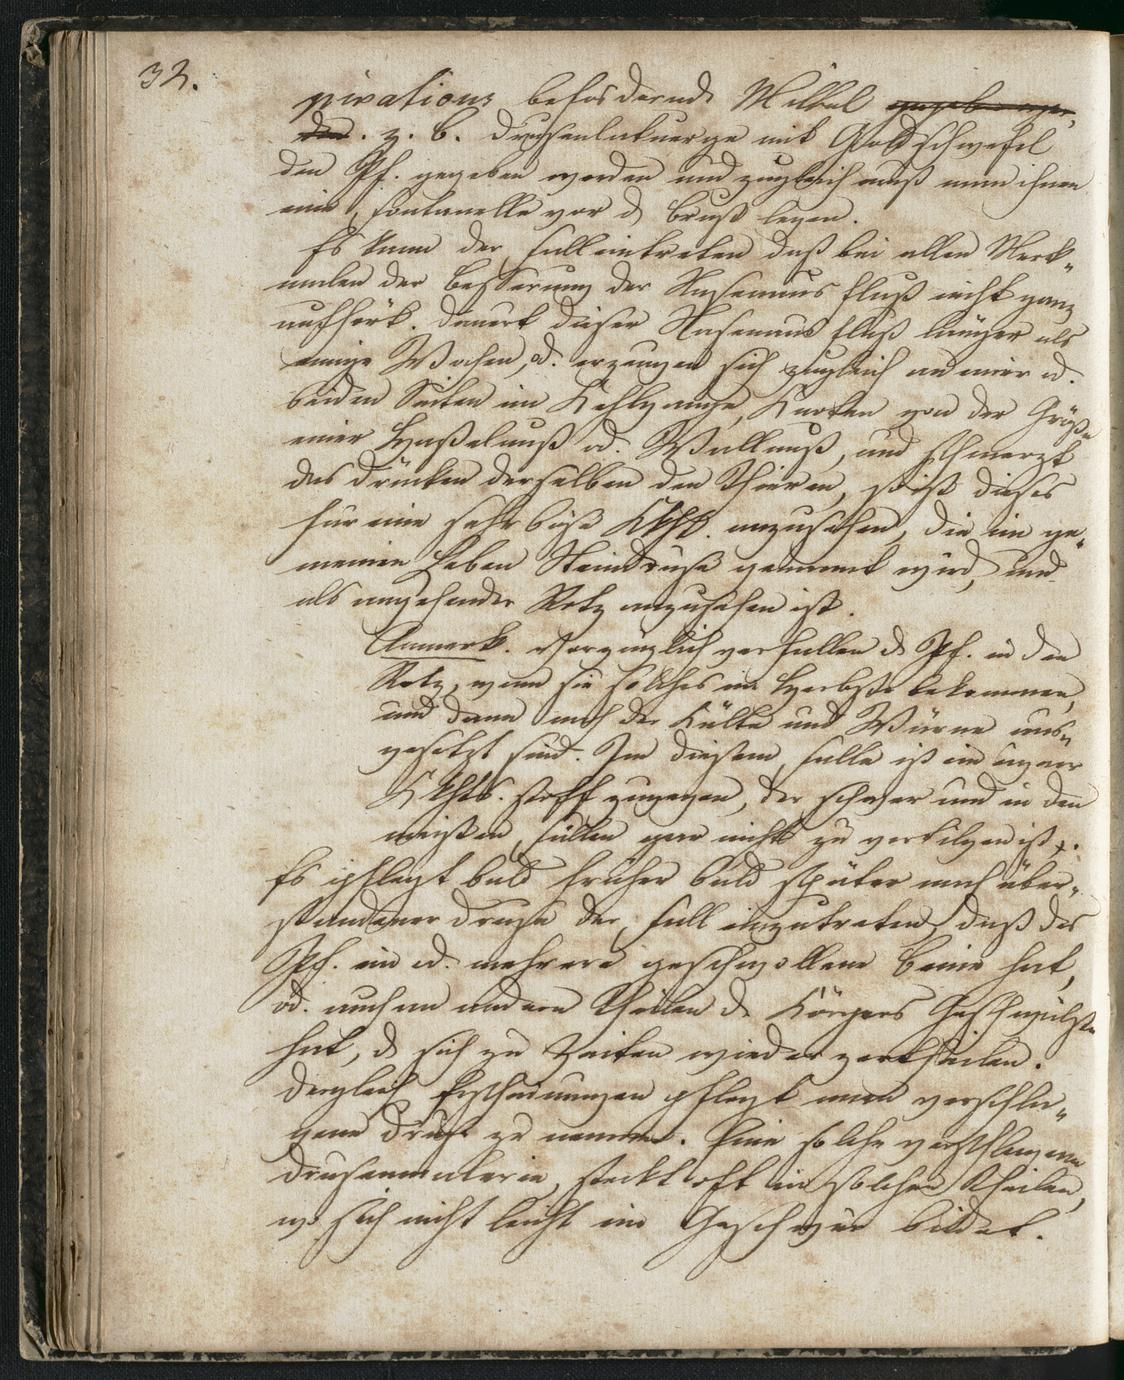 32.
pirations befördernde Mittel gegeben wer-
den. z. b. Drusenlatwerge mit Goldschwefel
den Pf. gegeben werden und zugleich muß man ihnen
eine Fontanelle vor d Brust legen.
Es kann der Fall eintreten daß bei allen Merk-
malen der Besserung der Nasenausfluß nicht ganz
aufhört. Dauert dieser Nasenausfluß länger als
einige Wochen, od. erzeugen sich zugleich an einer od.
beiden Seiten im Kehlgange, Knoten von der Größe
einer Haßelnuß od. Wallnuß, und schmerzt
das drücken derselben den Thieren, so ist dieses
für eine sehr böse Kkht. anzusehen, die im ge-
meinen Leben Steindruse genannt wird, und
als angehender Rotz anzusehen ist.
Anmerk. Vorzüglich verfallen d Pf. in den
Rotz, wenn sie solches im Herbste bekommen,
und dann noch der Kälte und Wärme aus-
gesetzt sind. In diesem Falle ist ein eigner
Kkhts. stoff zugegen, der schwer und in den
meisten Fällen gar nicht zu vertilgen ist.
Es pflegt bald früher bald später nach über-
standener Druse der Fall einzutreten, daß das
Pf. ein od. mehrere geschwollene Beine hat,
od. auch an andern Theilen d Körpers Geschwülste
hat, d sich zu Zeiten wieder zertheilen.
Dergleich Erscheinungen pflegt man verschla-
gene Druse zu nennen. Eine solche verschlagene
Drusenmaterie, steckt oft in solchen Theilen,
wo sich nicht leicht ein Geschwür bildet.